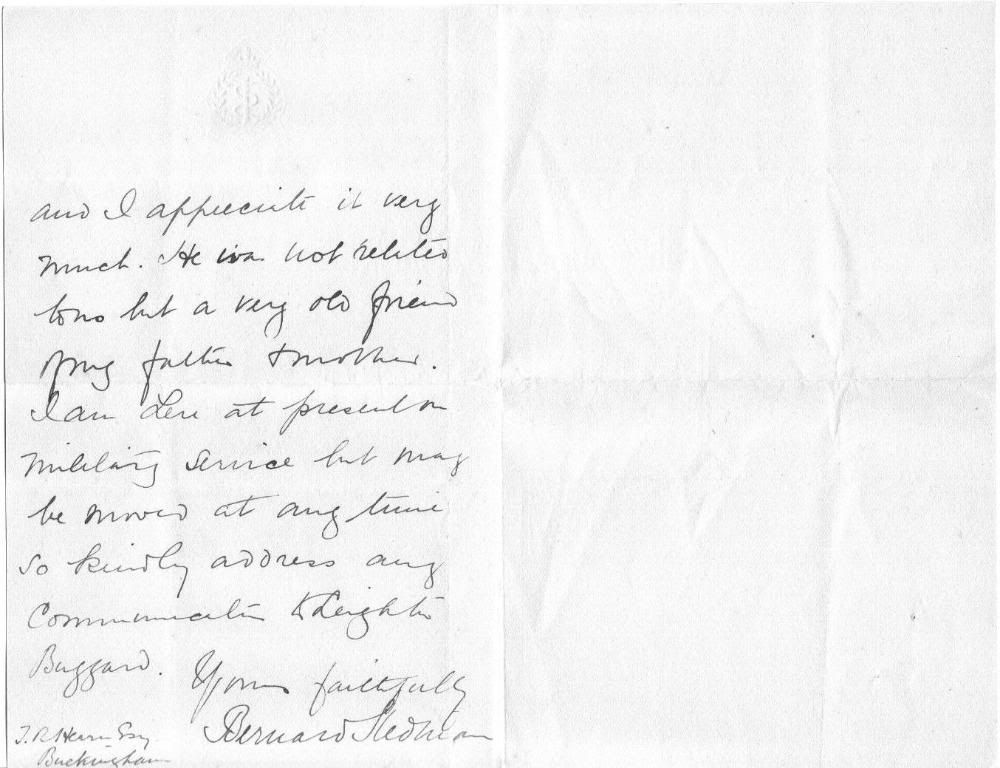 and I appreciate it very
much. He was not related
to us but a very old friend
of my father & mother.
I am here at present on
military service but may
be moved at any time
so kindly address any
communication to Leighton
Buzzard.
Yours faithfully
Bernard Stedman
T. R. Hearn Esq
Buckingham